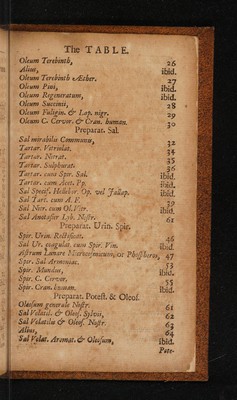 The TABLE.
Oleum Terebinth, 26
Aliud, ibid.
Oleum Terebinth Æther. 27
Oleum Pini, ibid.
Oleum Regeneratum, ibid.
Oleum Succini, 28
Oleum Fuligin. & Lap. nigr. 29
Oleum C. Cervor. & Cran. human. 30
Preparat. Sal.
Sal mirabilis Communis, 32
Tartar. Vitriolat. 34
Tartar. Nitrat. 35
Tartar. Sulphurat. 36
Tartar. cum Spir. Sal. ibid.
Tartar. cum Acet. Pp. ibid.
Sal Specif. Hellebor. Op. vel Jallap. ibid.
Sal Tart. cum A. F. 39
Sal Nitr. cum Ol. Vitr. ibid.
Sal Antifastid Lob. Nostr. 61
Preparat. Urin. Spir.
Spir. Urin. Rectificat. 46
Sal Ur. coagulat. cum Spir. Vin. ibid.
Astrum Lunare Microcosmicum, or Phosphorus, 47
Spir. Sal Armoniac. 53
Spir. Mundus, ibid.
Spir. C. Cervor. 55
Spir. Cran. human. ibid.
Preparat. Potest. & Oleos.
Oleosum generale Nostr. 61
Sal Volatil. & Oleos. Sylvii, 62
Sal Volatilis & Oleos. Nostr. 63
Alius, 64
Sal Volat. Aromat. & Oleosum, ibid.
Pote-